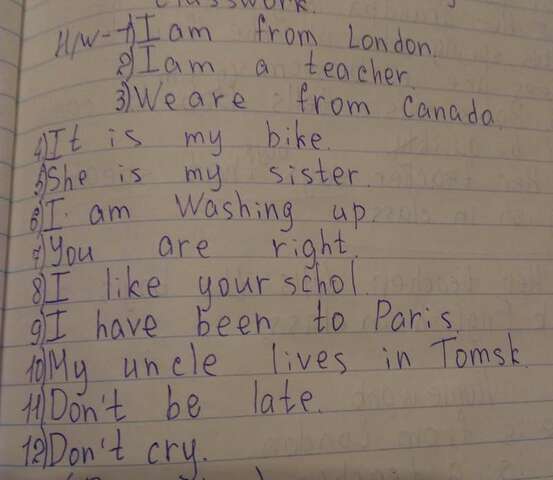 classwork.
H/w - 1) I am from London.
2) I am a teacher.
3) We are from Canada.
4) It is my bike.
5) She is my sister.
6) I am Washing up.
7) You are right.
8) I like your schol.
9) I have been to Paris.
10) My uncle lives in Tomsk.
11) Don't be late.
12) Don't cry.